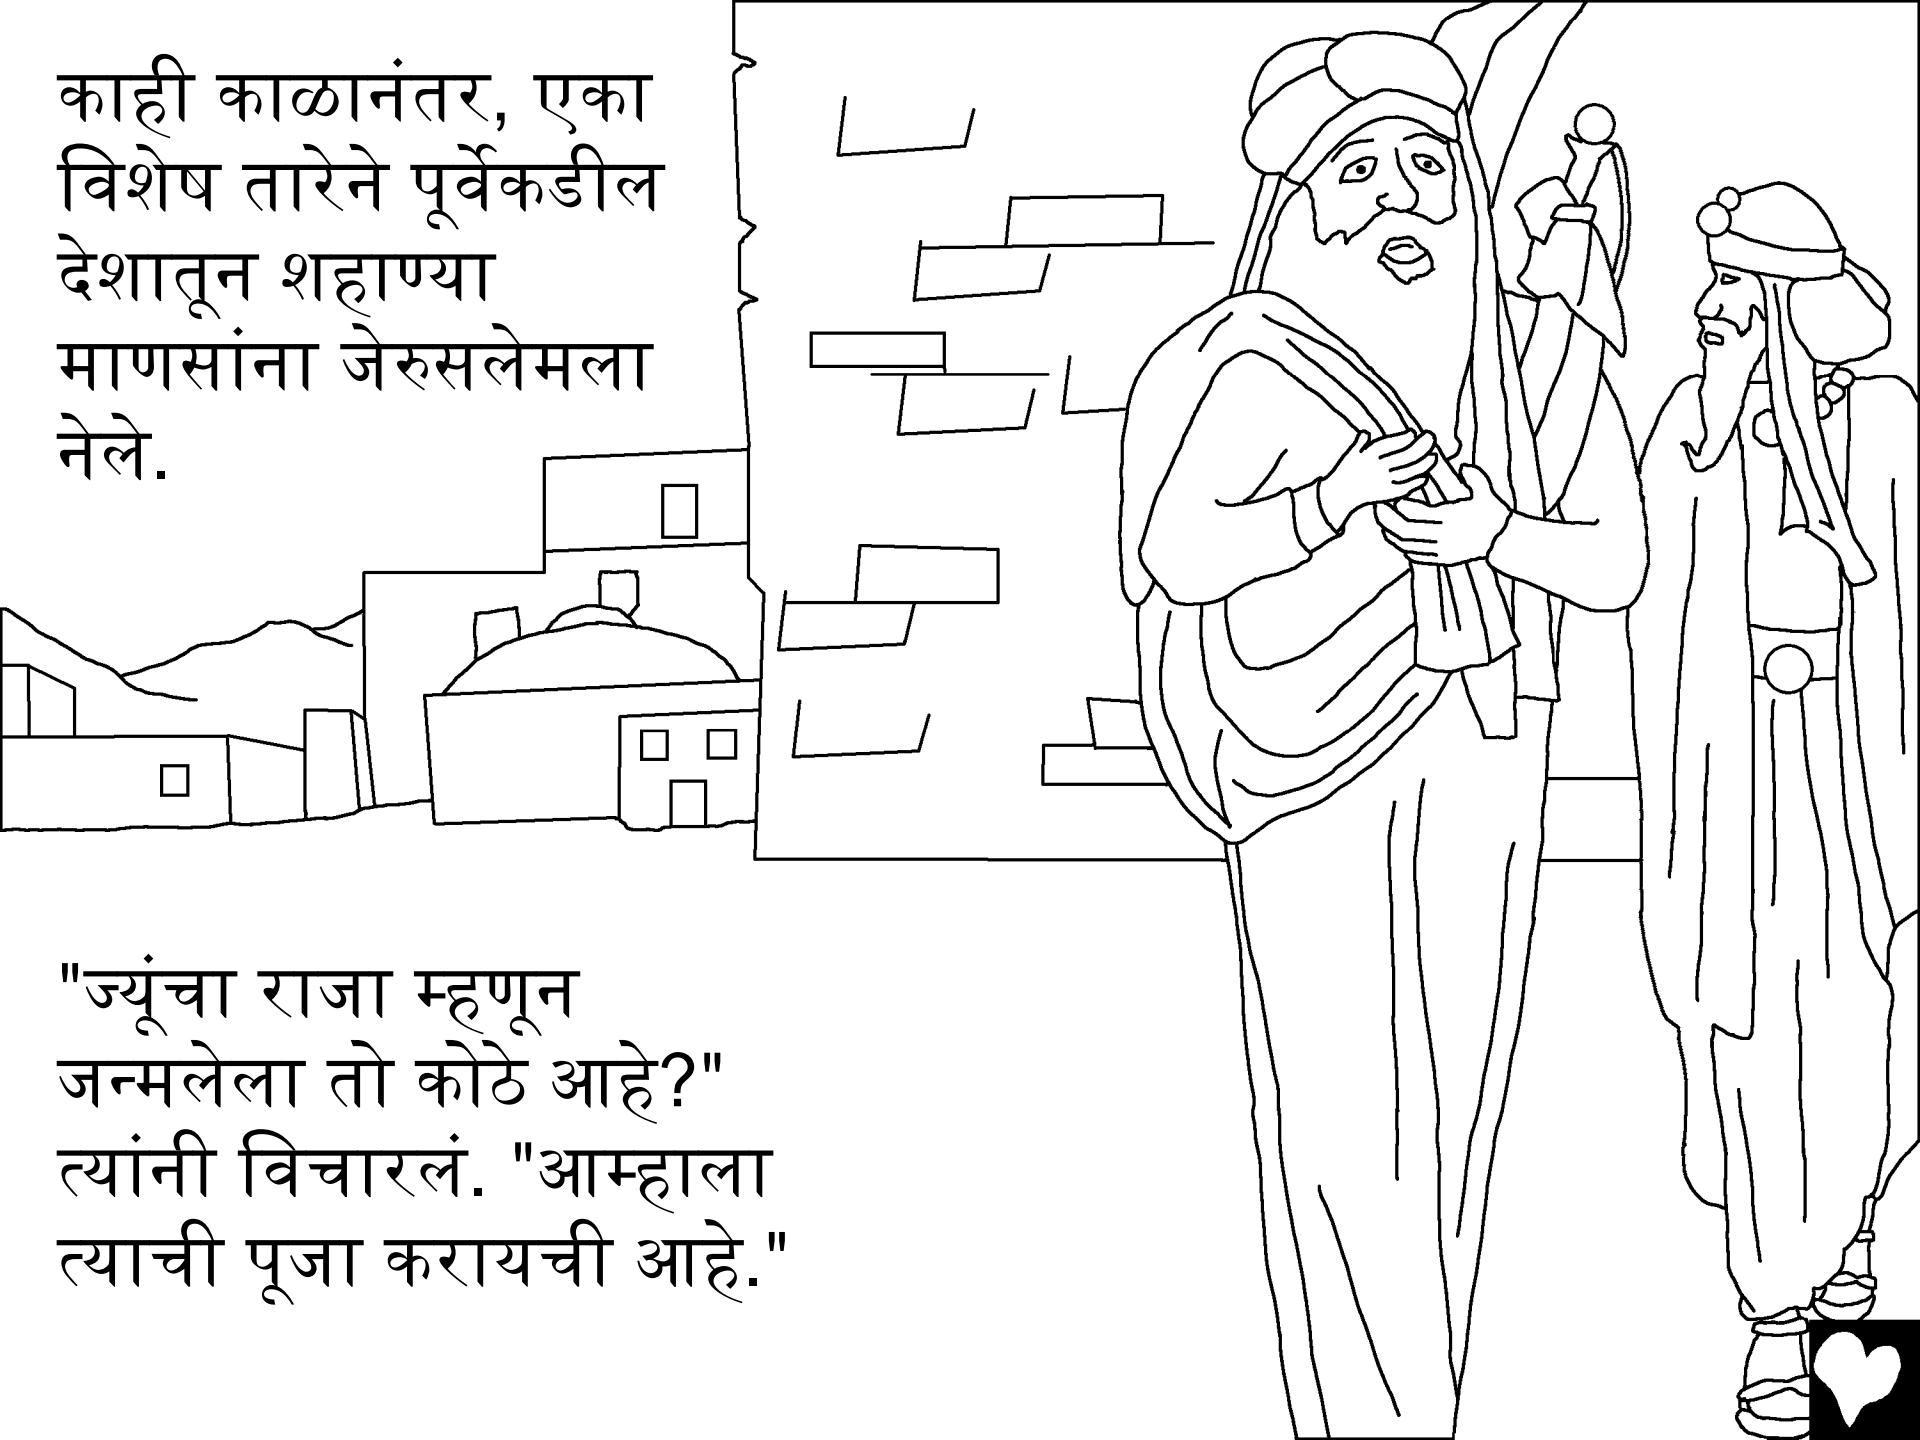 काही काळानंतर, एका
विशेष तारेने पूर्वेकडील
देशातून शहाण्या
माणसांना जेरुसलेमला
नेले.
"ज्यूंचा राजा म्हणून
जन्मलेला तो कोठे आहे?"
त्यांनी विचारलं. "आम्हाला
त्याची पूजा करायची आहे."